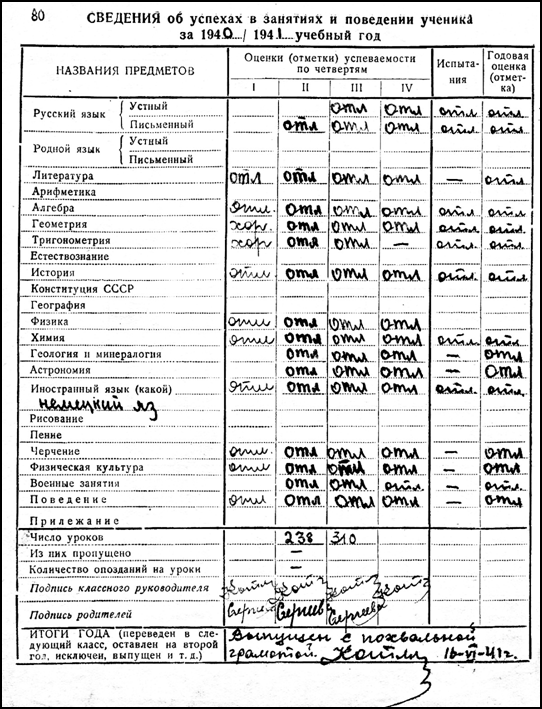 80 СВЕДЕНИЯ об успехах в занятиях и поведении ученика
за 1940/1941 учебный год
НАЗВАНИЯ ПРЕДМЕТОВ Оценки (отметки) успеваемости по четвертям Испытания Годовая оценка (отметка)
I II III IV
Русский язык
Устный отл отл отл отл
Письменный отл отл отл отл отл
Родной язык
Устный
Письменный
Литература отл отл отл отл — отл
Арифметика
Алгебра отл. отл отл отл отл отл
Геометрия хор. отл отл отл отл. отл.
Тригонометрия хор отл отл — отл отл.
Естествознание
История отл отл отл отл отл. отл.
Конституция СССР
География
Физика отл отл отл отл
Химия отл отл отл отл отл. отл
Геология и минералогия отл отл отл — отл
Астрономия отл отл отл — отл
Иностранный язык (какой) отл отл отл отл отл. отл.
немецкий яз
Рисование
Пение
Черчение отл. отл отл отл — отл
Физическая культура отл отл отл отл — отл
Военные занятия отл отл отл. — отл.
Поведение отл отл отл отл — отл
Прилежание
Число уроков 238 310
Из них пропущено —
Количество опозданий на уроки —
Подпись классного руководителя
Подпись родителей Сергеев Сергеева
ИТОГИ ГОДА (переведен в следующий класс, оставлен на второй год, исключен, выпущен и т. д.)
Выпущен с похвальной
грамотой. 16-VI-41г.